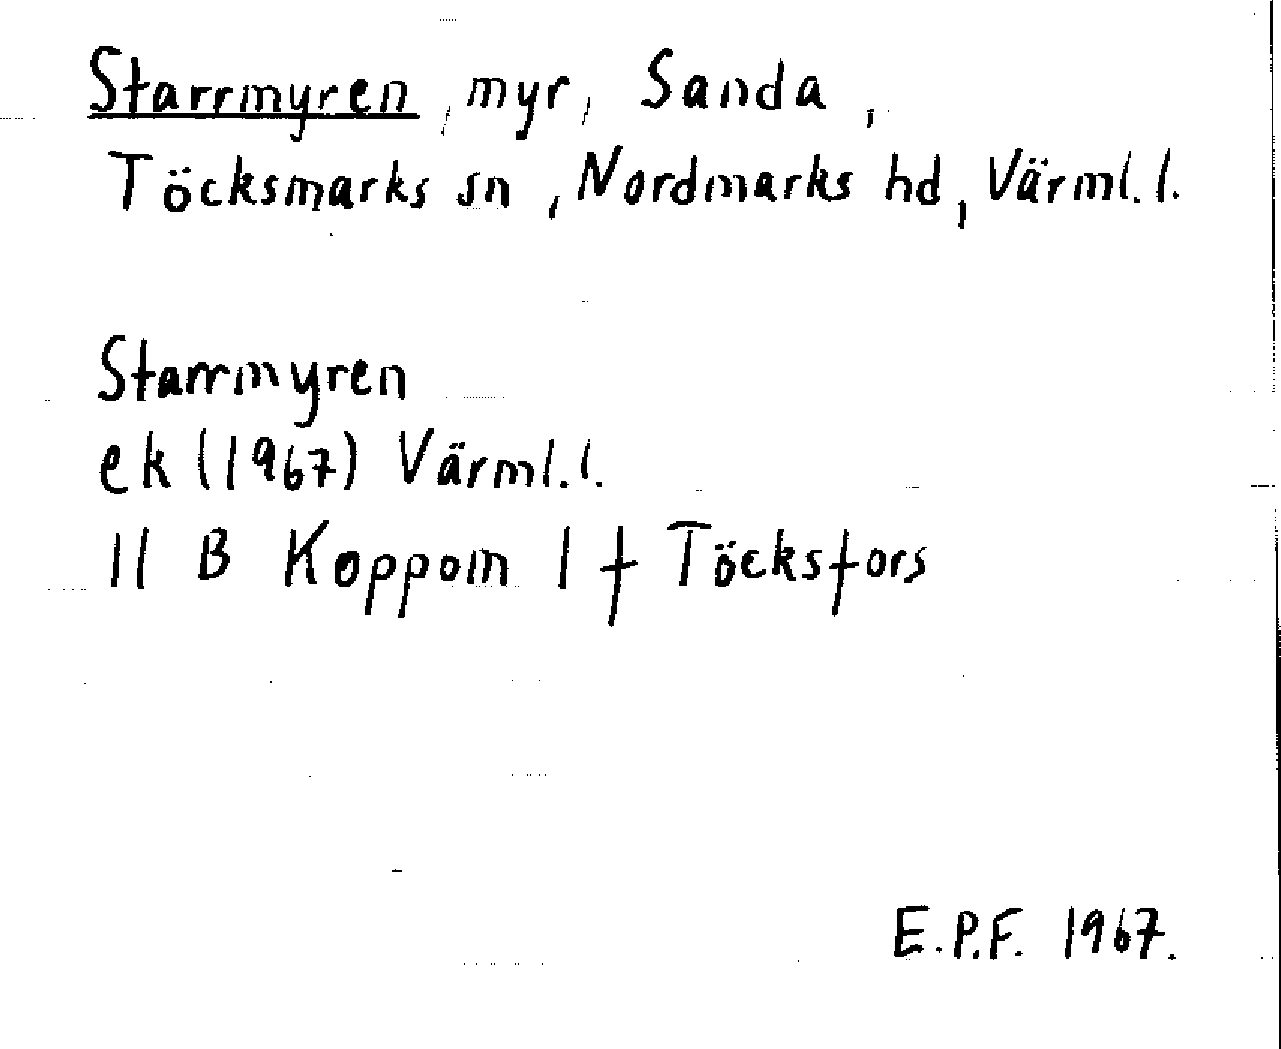 Starrmyren, myr, Sanda,
Töcksmarks sn, Nordmarks hd, Värml. l.
Starrmyren
ek (1967) Värml. l.
11 B Koppom 1 f Töcksfors
E.P.F. 1967.